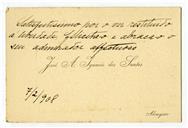 Satisfeitissimo por o ver restituido
a liberdade felicita-o e abraça-o
o seu admirador affectuoso
José A. Ignacio dos Santos
7/2/908